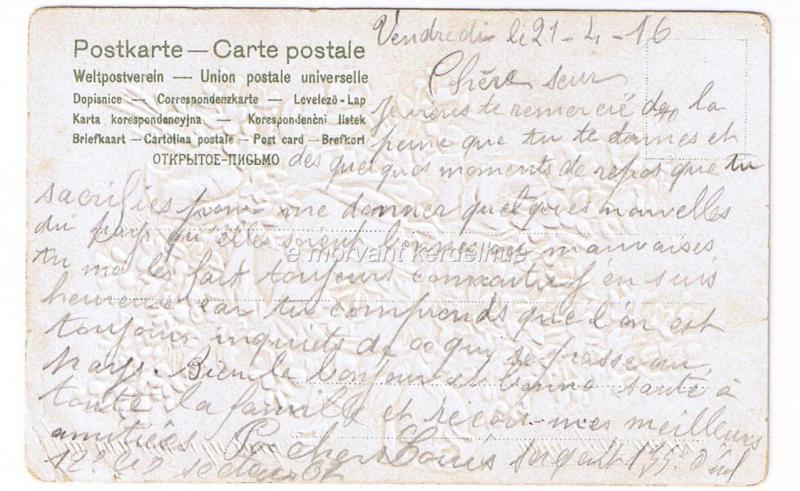 Postkarte — Carte postale
Weltpostverein — Union postale universelle
Dopisnice — Correspondenzkarte — Levelező-Lap
Karta korespondencyjna — Korespondenčni listek
Briefkaart — Cartolina postale — Post card — Brefkort
ОТКРЫТОЕ-ПИСЬМО
Vendredi le 21 - 4 - 16
Chère seur
je vous te remercié de la
peine que tu te donnes et
des quelques moments de repos que tu
sacrifies pour me donner quelques nouvelles
du pays qu'elles soient bonnes ou mauvaises
tu me les fait toujours connaitre j'en suis
heureux car tu comprends que l'on est
toujours inquiets de ce qui se passe au
pays. Bien le bonjour et bonne santé à
toute la famille et reçois mes meilleurs
amitiées Louis Sergent 135e d'inf
12e Cie
e morvant kerdelhue